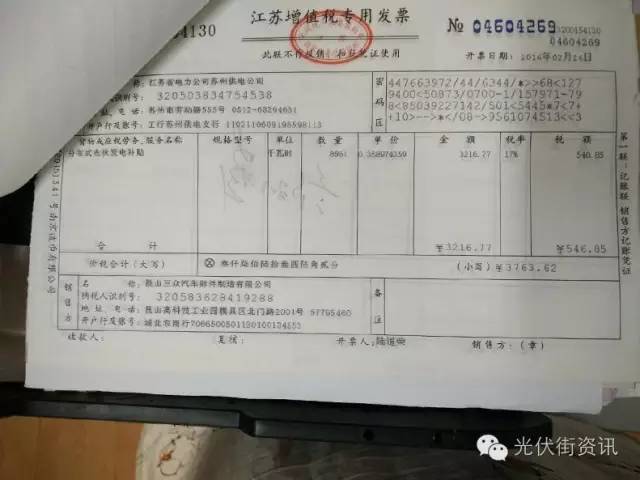 54130
江苏增值税专用发票
№ 04604269
3200154130
04604269
此联不作报销、扣税凭证使用
开票日期：
名 称：江苏省电力公司苏州供电公司
纳税人识别号：320503834754538
地 址、电 话：苏州市劳动路555号 0512-68294631
开户行及账号：工行苏州供电支行 1102110609195598113
密码区
447663972/44/6344/*>>68<127
9400<50873/0700-1/157971-79
8<85039227142/501<5445*7<7+
+10>--->*</08->9561074513<<3
货物或应税劳务、服务名称
规格型号
单位
数 量
单 价
金 额
税率
税 额
分布式光伏发电补贴
千瓦时
8961
0.358974359
3216.77
17%
546.85
合 计
￥3216.77
￥546.85
价税合计（大写）
ⓧ 叁仟柒佰陆拾叁圆陆角贰分
（小写）￥3763.62
销售方
名 称：昆山三众汽车部件制造有限公司
纳税人识别号：320583628419288
地 址、电 话：昆山高科技工业园模具区北门路2001号 57795460
开户行及账号：城北农商行
备注
收款人：
复核：
开票人：
销售方：（章）
第一联：记账联 销售方记账凭证
光伏街资讯